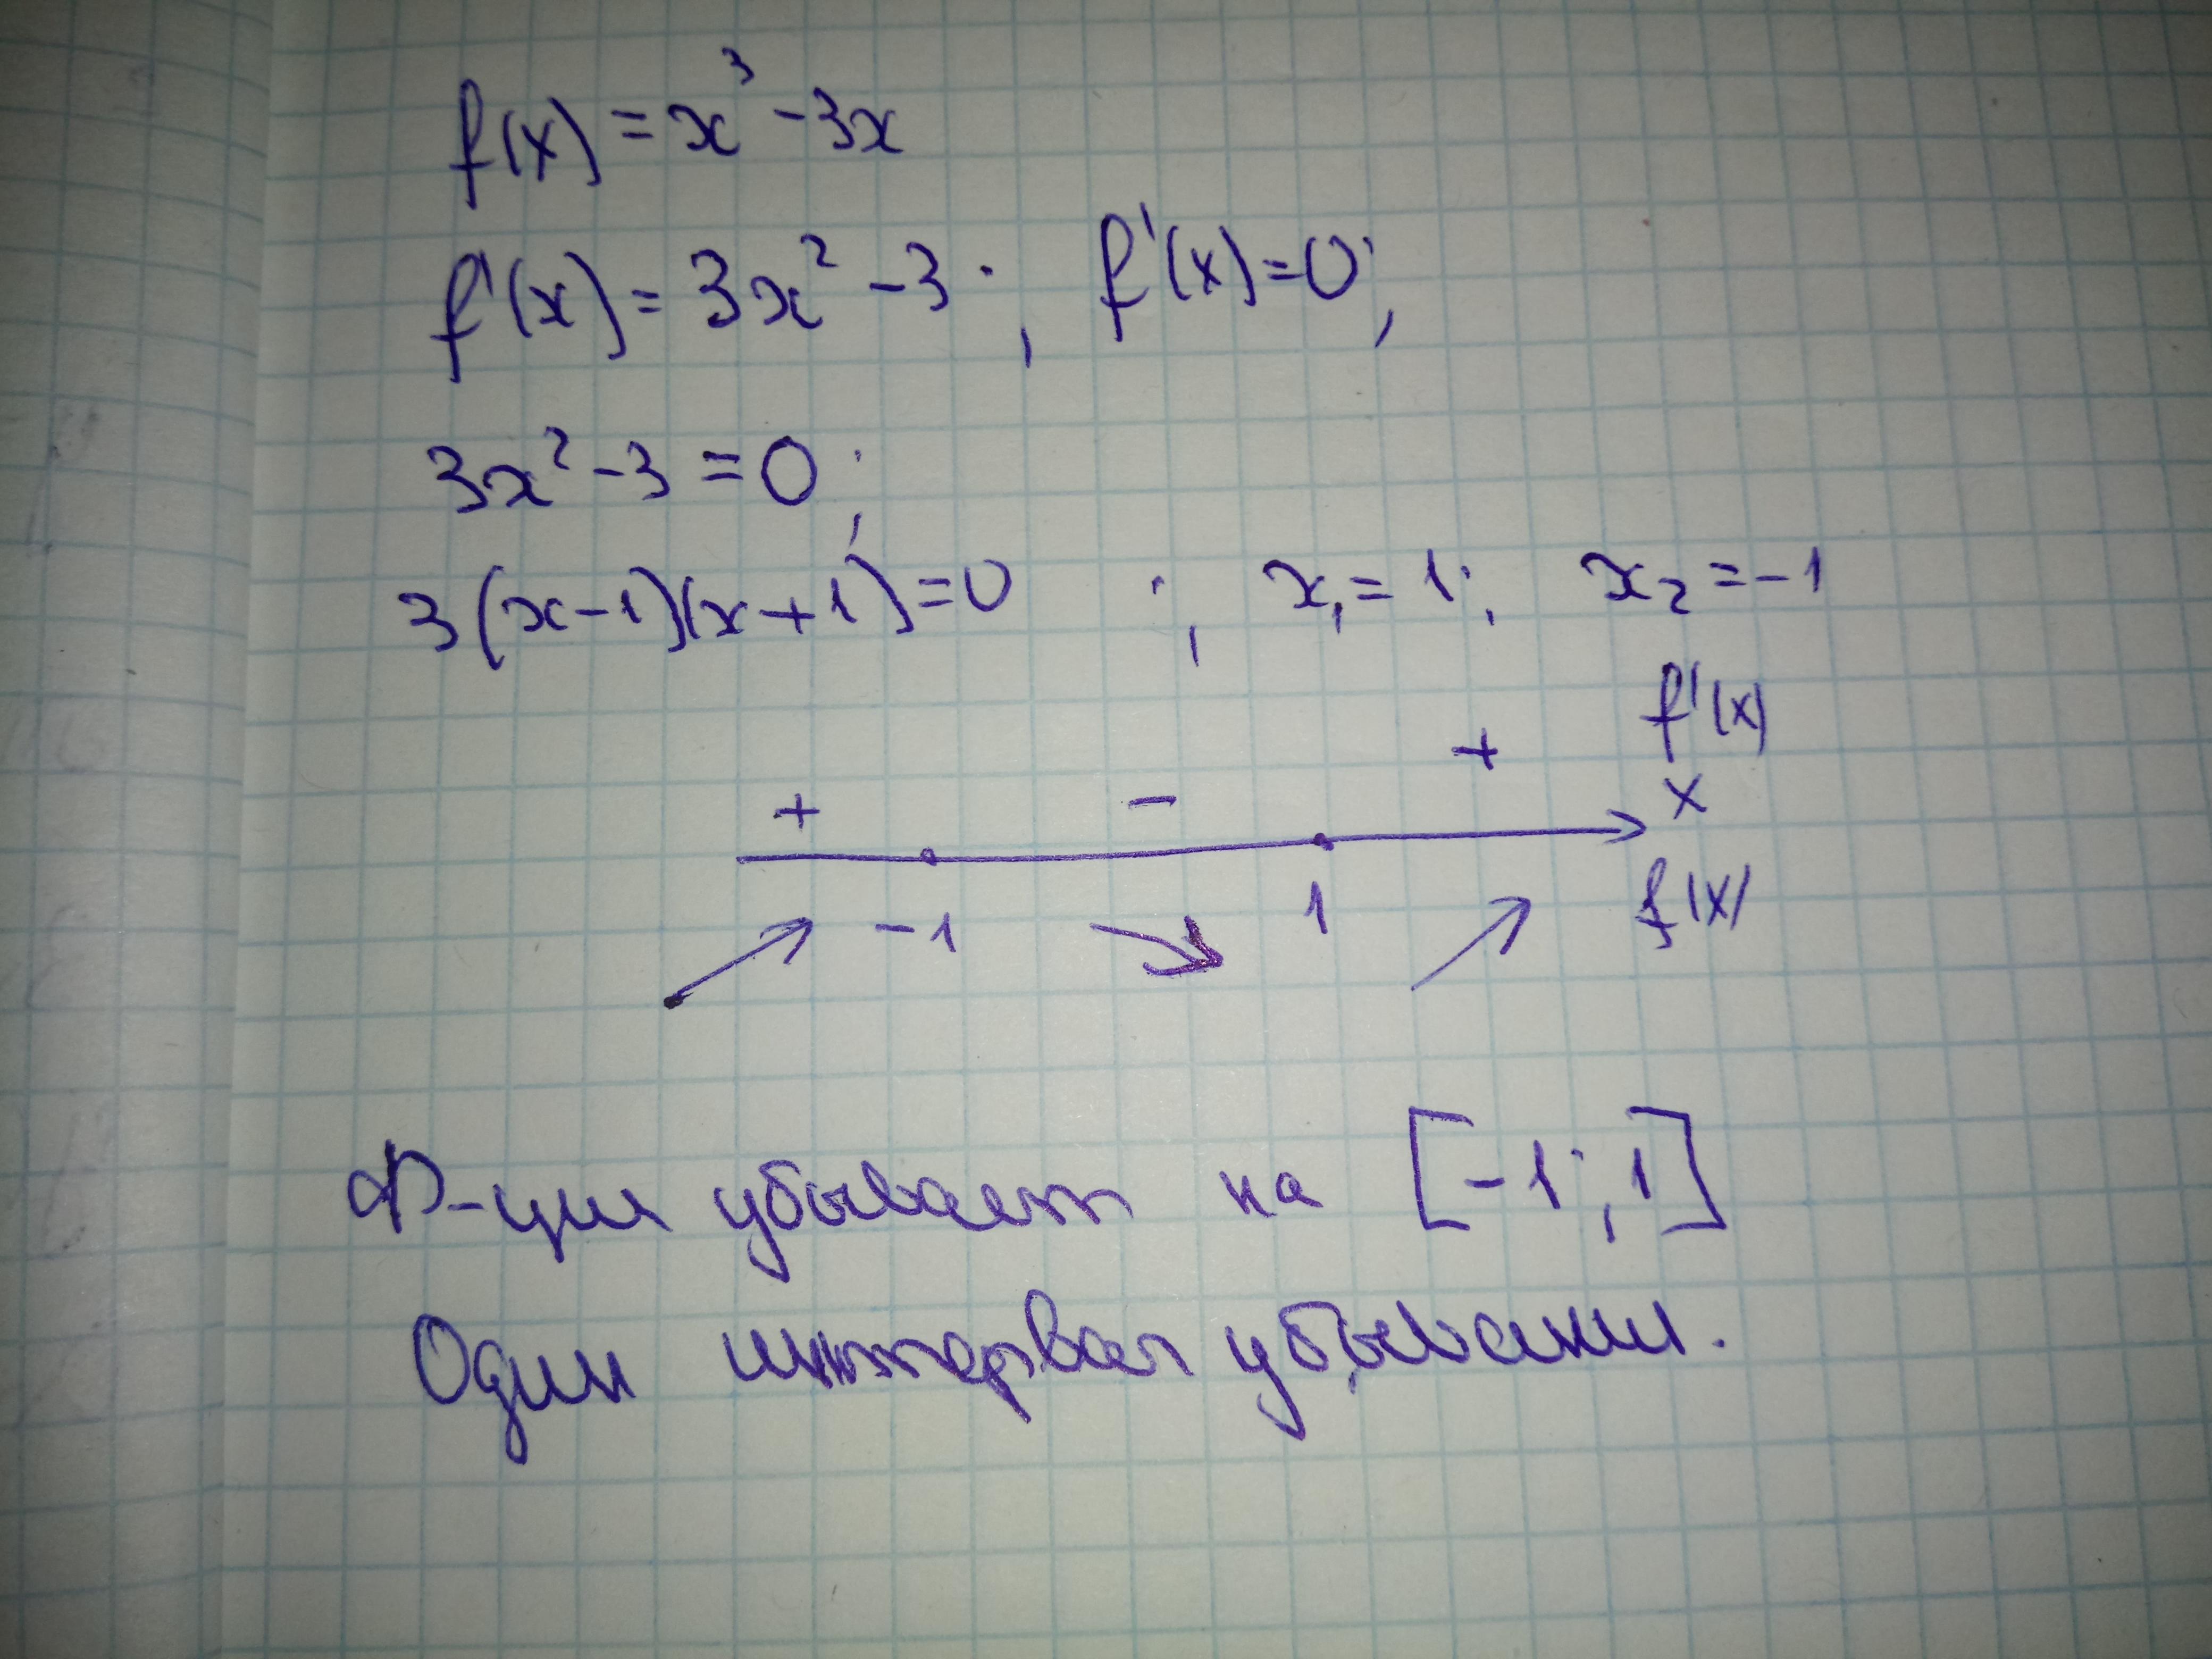 f(x) = x³ - 3x
f'(x) = 3x² - 3 ; f'(x) = 0 ;
3x² - 3 = 0 ;
3(x-1)(x+1) = 0 ; x₁ = 1 ; x₂ = -1
f'(x)
+ - + x
-1 1 f(x)
Ф-ция убывает на [-1 ; 1]
Один интервал убывания.